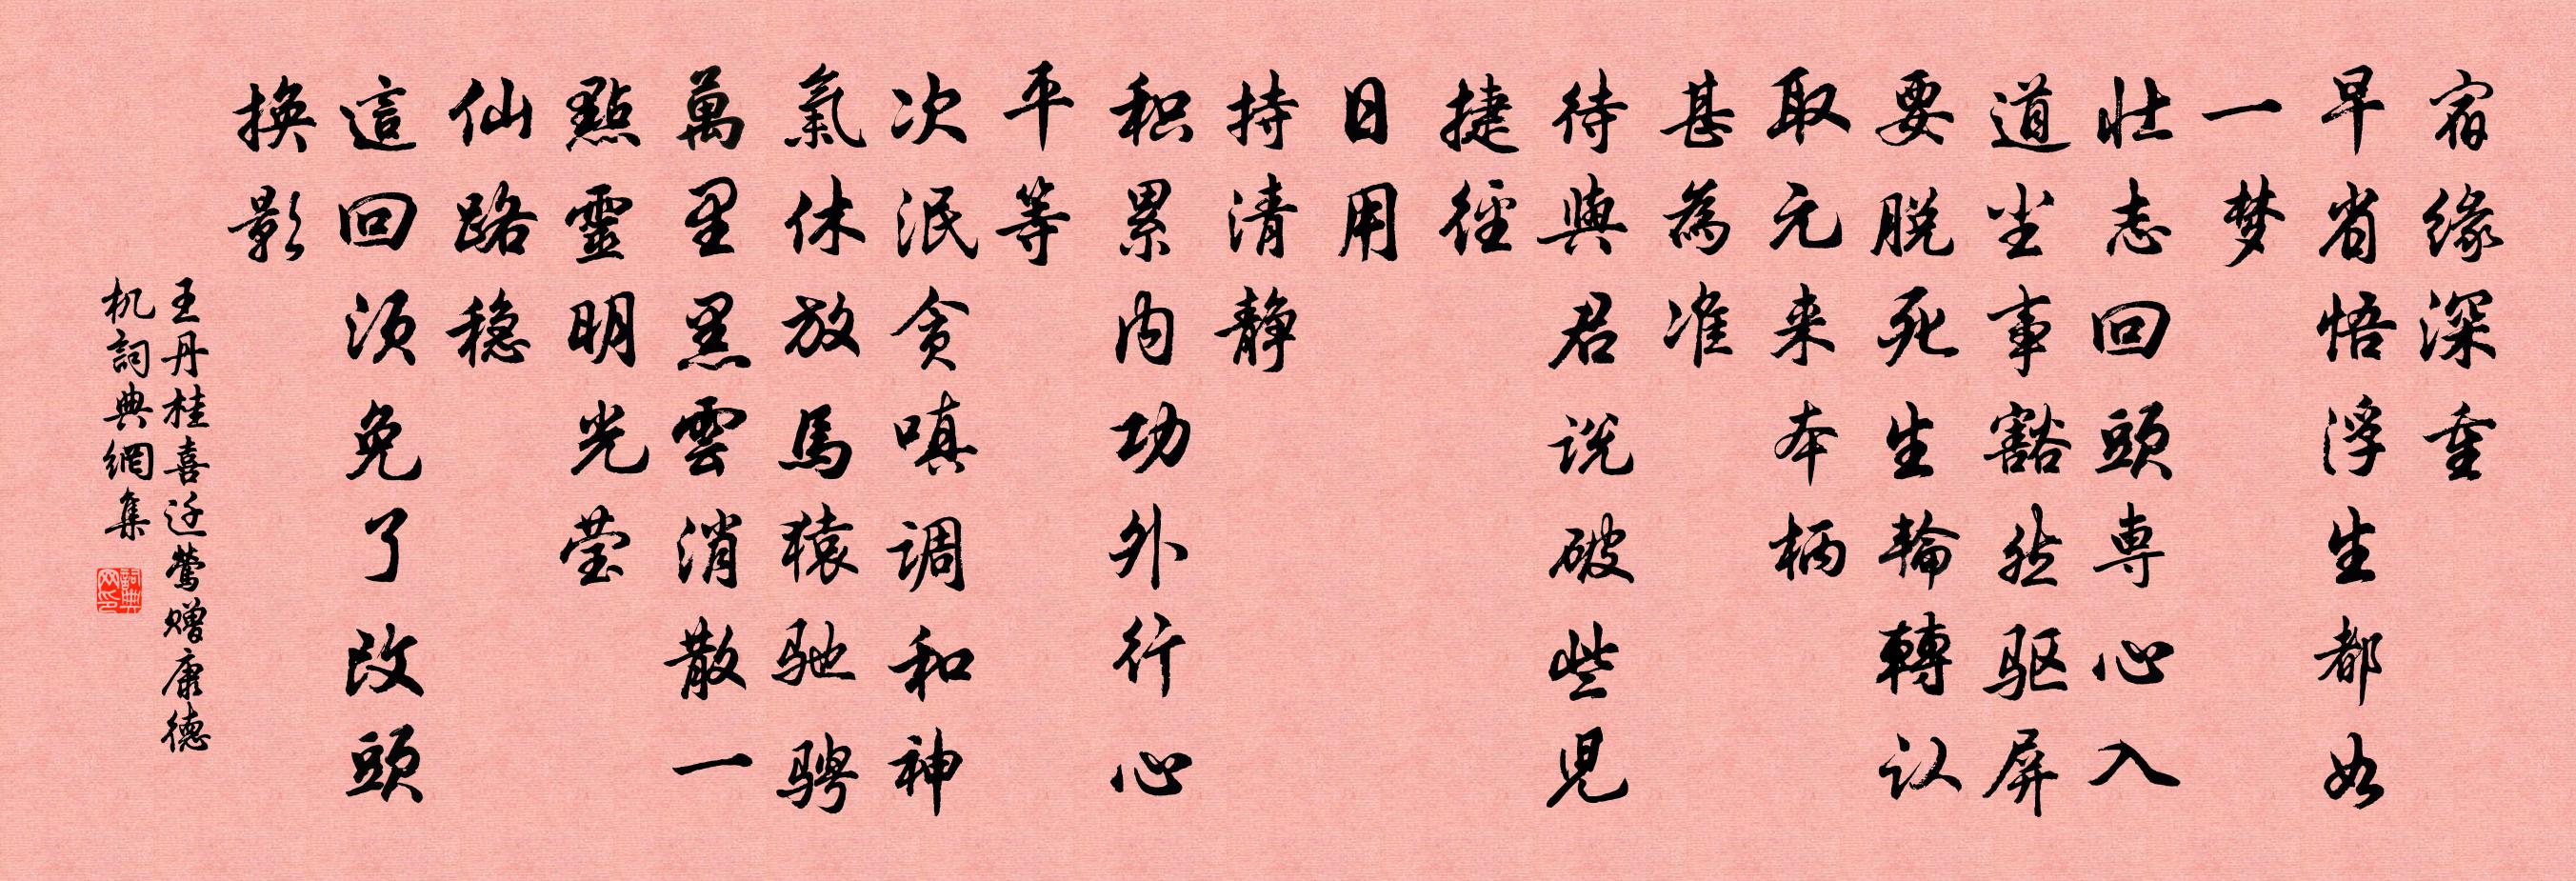 宿缘深重
早省悟浮生都如
一梦
壮志回頭専心入
道尘事豁然驱屏
要脱死生輪轉认
取元来本柄
甚為准
待與君说破些児
捷径
日用
持清静
积累内功外行心
平等
次泯贪嗔调和神
氣休放馬猿驰骋
萬里黑雲消散一
點靈明光莹
仙路稳
這回须免了改頭
換影
王丹桂喜迁莺赠康德
机詞典網集
詞典网印